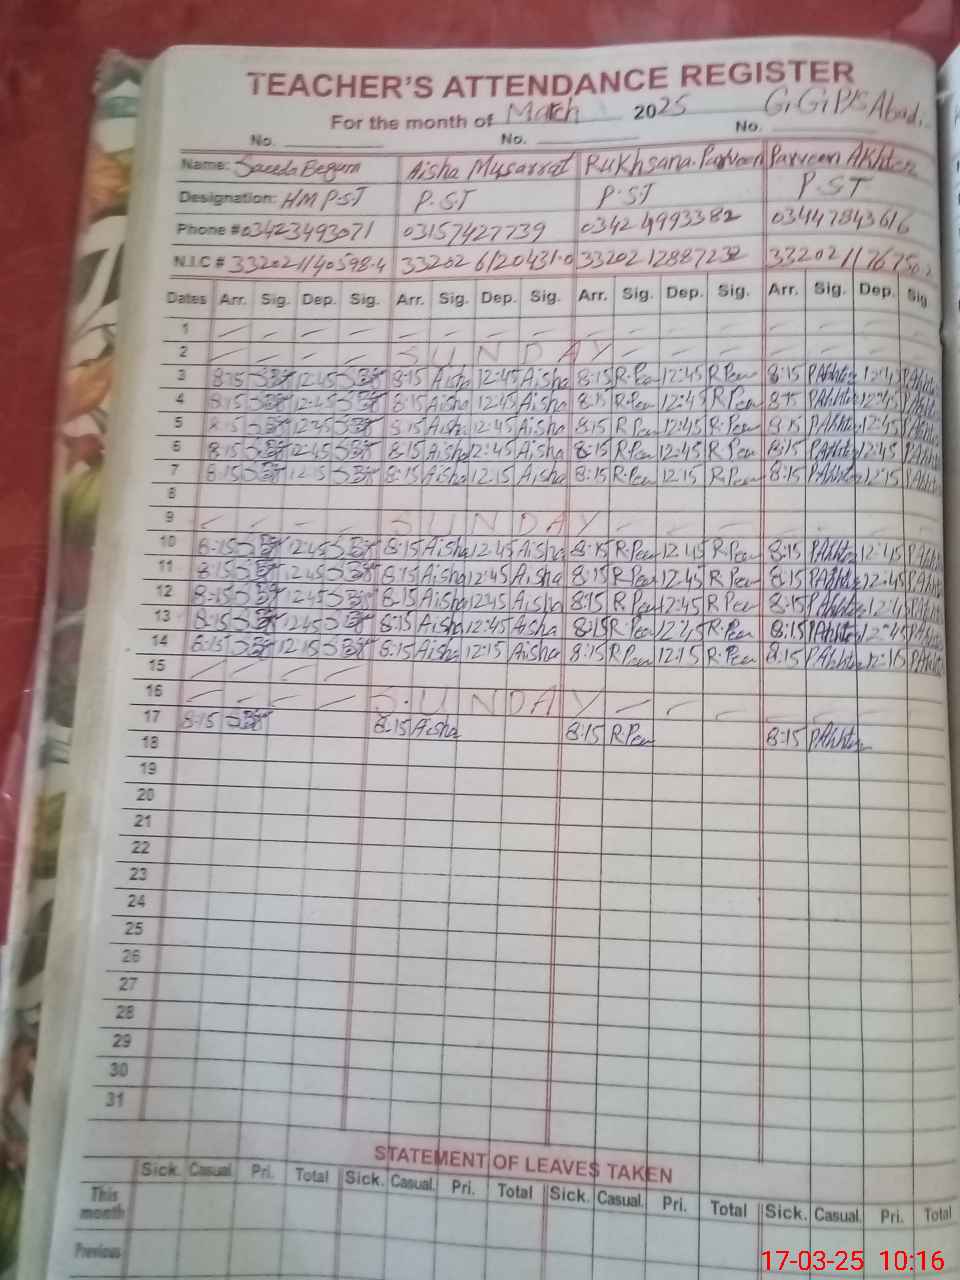 TEACHER'S ATTENDANCE REGISTER
For the month of March 2025 G.G.P/S Abad.
No. No. No.
Name: Saeeda Begum Aisha Musarrat Rukhsana Parveen Parveen Akhter
Designation: HM P.S.T P.S.T P.S.T P.S.T
Phone # 03423493071 03157427739 0342 4993382 03447843616
N.I.C # 33202 6120431-0 33202 12887232
Dates Arr. Sig. Dep. Sig. Arr. Sig. Dep. Sig. Arr. Sig. Dep. Sig. Arr. Sig. Dep. Sig
1
2 SUNDAY
3 8:15 12:45 8:15 Aisha 12:45 Aisha 8:15 R.Peen 12:45 R Peen 8:15 PAkhter 12:45 PAkhter
4 8:15 12:45 8:15 Aisha 12:45 Aisha 8:15 R.Peen 12:45 R Peen 8:15 PAkhter 12:45 PAkhter
5 8:15 12:45 8:15 Aisha 12:45 Aisha 8:15 R.Peen 12:45 R.Peen 8:15 PAkhter 12:45 PAkhter
6 8:15 12:45 8:15 Aisha 12:45 Aisha 8:15 R.Peen 12:45 R.Peen 8:15 PAkhter 12:45 PAkhter
7 8:15 12:15 8:15 Aisha 12:15 Aisha 8:15 R.Peen 12:15 R.Peen 8:15 PAkhter 12:15 PAkhter
8
9 SUNDAY
10 8:15 12:45 8:15 Aisha 12:45 Aisha 8:15 R.Peen 12:45 R.Peen 8:15 PAkhter 12:45 PAkhter
11 8:15 12:45 8:15 Aisha 12:45 Aisha 8:15 R Peen 12:45 R Peen 8:15 PAkhter 12:45 PAkhter
12 8:15 12:45 8:15 Aisha 12:45 Aisha 8:15 R Peen 12:45 R Peen 8:15 PAkhter 12:45 PAkhter
13 8:15 12:45 8:15 Aisha 12:45 Aisha 8:15 R.Peen 12:45 R.Peen 8:15 PAkhter 12:45 PAkhter
14 8:15 12:15 8:15 Aisha 12:15 Aisha 8:15 R Peen 12:15 R.Peen 8:15 PAkhter 12:15 PAkhter
15
16 SUNDAY
17 8:15 8:15 Aisha 8:15 R.Peen 8:15 PAkhter
18
19
20
21
22
23
24
25
26
27
28
29
30
31
STATEMENT OF LEAVES TAKEN
Sick. Casual. Pri. Total Sick. Casual. Pri. Total Sick. Casual. Pri. Total Sick. Casual. Pri. Total
This month
Previous
17-03-25 10:16